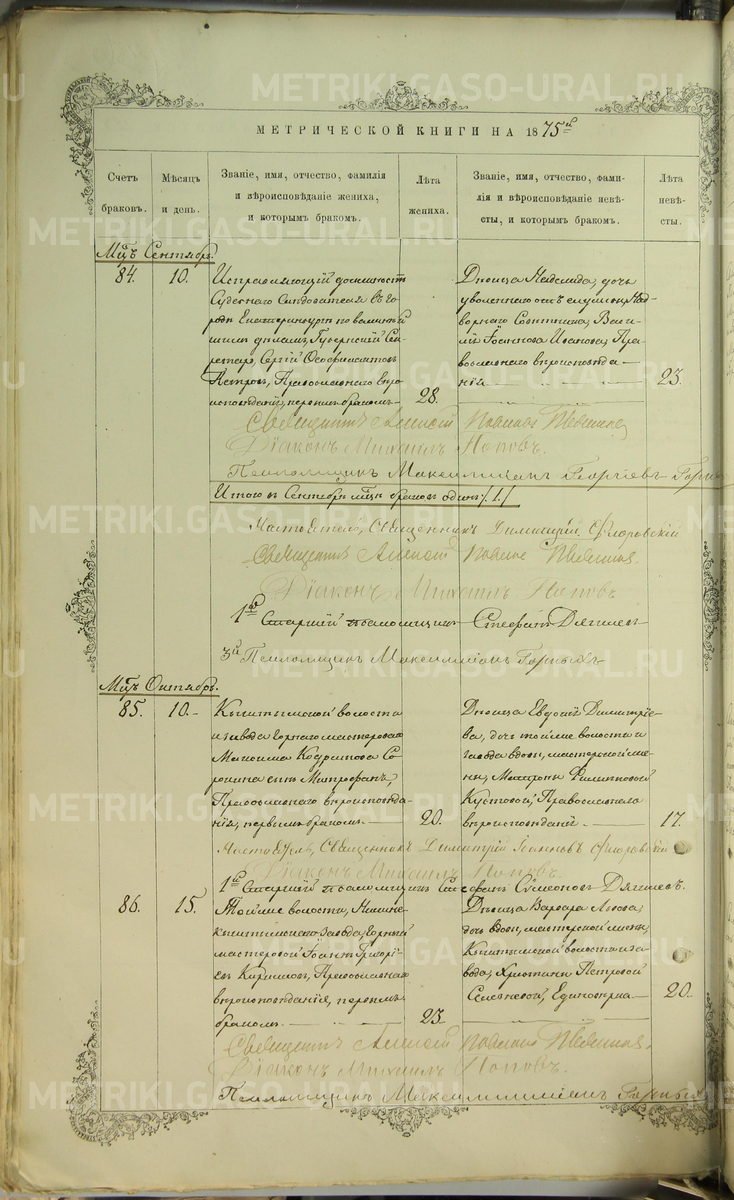 МЕТРИЧЕСКОЙ КНИГИ НА 1875й
Счетъ браковъ.
Мѣсяцъ и день.
Званіе, имя, отчество, фамилія
и вѣроисповѣданіе жениха,
и которымъ бракомъ.
Лѣта жениха.
Званіе, имя, отчество, фами-
лія и вѣроисповѣданіе невѣ-
сты, и которымъ бракомъ.
Лѣта невѣ-
сты.
Мцъ Сентябрь.
84.
10.
Исправляющій должность
Судебнаго Слѣдователя въ го-
родѣ Екатеринбургѣ по важнѣй
шимъ дѣламъ, Губернскій Сек-
ретарь, Сергій Ѳеофилактовъ
Петровъ, Православнаго вѣро
исповѣданія, первымъ бракомъ
28.
Дѣвица Надежда, дочь
уволеннаго отъ службы Над-
ворнаго Совѣтника, Васи-
лія Іоаннова Иванова, Пра-
вославнаго вѣроисповѣда-
нія
23.
Священникъ Алексій
Діаконъ Михаилъ Поповъ.
Псаломщикъ Максимиліанъ Георгіевъ
Итого въ Сентябрѣ мцѣ браковъ одинъ /1/
Настоятель, Священникъ Димитрій Флоровскій
Священникъ Алексій
Діаконъ Михаилъ Поповъ
1й Старшій псаломщикъ Стефанъ Дягилевъ
3й Псаломщикъ Максимиліанъ Горныхъ
Мцъ Октябрь.
85.
10.
Кыштымской волости
и завода Горнаго мастероваго
Максима Кодратова Со-
рокина сынъ Митрофанъ,
Православнаго вѣроисповѣда-
нія, первымъ бракомъ
20.
Дѣвица Евдокія Димитріе-
ва, дочь той же волости и
завода вдовы, мастерской же-
ны, Матроны Филипповой
Кустовой, Православнаго
вѣроисповѣданія.
17.
Настоятель, Священникъ Димитрій Іоанновъ Флоровскій
Діаконъ Михаилъ Поповъ.
1й Старшій псаломщикъ Стефанъ Симеоновъ Дягилевъ.
86.
15.
Той же волости, Нижне-
кыштымскаго Завода, Горный
мастеровой Іоаннъ Григорі-
евъ Кириловъ, Православнаго
вѣроисповѣданія, первымъ
бракомъ.
23
Дѣвица Варвара
дочь вдовы, мастерской жены,
Кыштымской волости и за-
вода, Христины Петровой
Селезневой, Единовѣрка
20.
Священникъ Алексій
Діаконъ Михаилъ Поповъ.
Псаломщикъ Максимиліанъ Горныхъ
METRIKI.GASO-URAL.RU